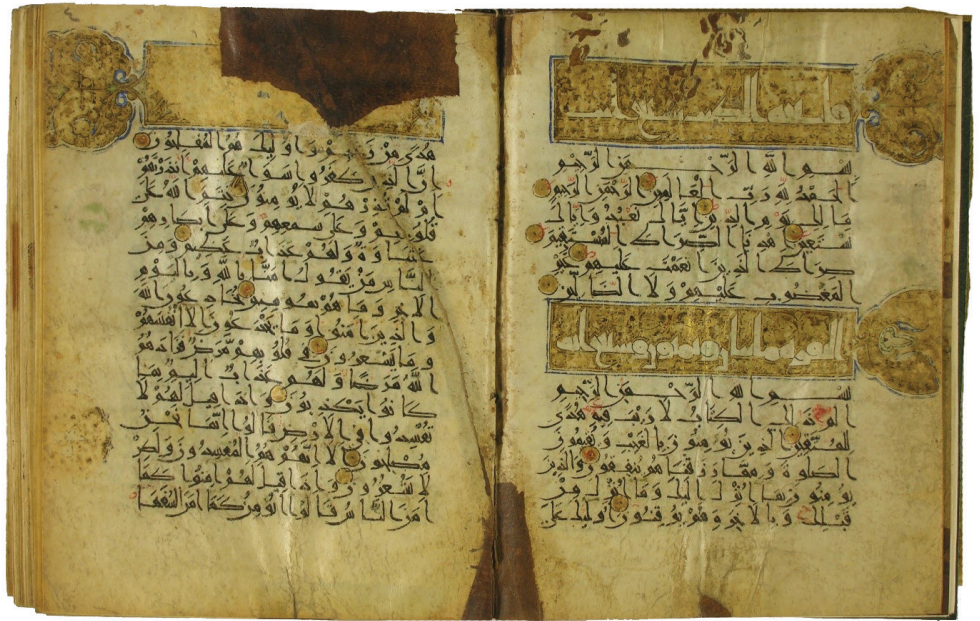 بسم الله الرحمن الرحيم
الحمد لله رب العالمين الرحمن الرحيم
ملك يوم الدين اياك نعبد واياك
نستعين اهدنا الصراط المستقيم
صراط الذين انعمت عليهم غير
المغضوب عليهم ولا الضالين
بسم الله الرحمن الرحيم
الم ذلك الكتاب لا ريب فيه هدى
للمتقين الذين يؤمنون بالغيب ويقيمون
الصلوة ومما رزقناهم ينفقون والذين
يؤمنون بما انزل اليك وما انزل من
قبلك وبالاخرة هم يوقنون اوليك على
هدى من ربهم واوليك هم المفلحون
ان الذين كفروا سواء عليهم اانذرتهم
ام لم تنذرهم لا يؤمنون ختم الله على
قلوبهم وعلى سمعهم وعلى ابصارهم
غشاوة ولهم عذاب عظيم ومن
الناس من يقول امنا بالله وباليوم
الاخر وما هم بمؤمنين يخادعون الله
والذين امنوا وما يخدعون الا انفسهم
وما يشعرون في قلوبهم مرض فزادهم
الله مرضا ولهم عذاب اليم بما
كانوا يكذبون واذا قيل لهم لا
تفسدوا في الارض قالوا انما نحن
مصلحون الا انهم هم المفسدون ولكن
لا يشعرون واذا قيل لهم امنوا كما
امن الناس قالوا انؤمن كما امن السفها